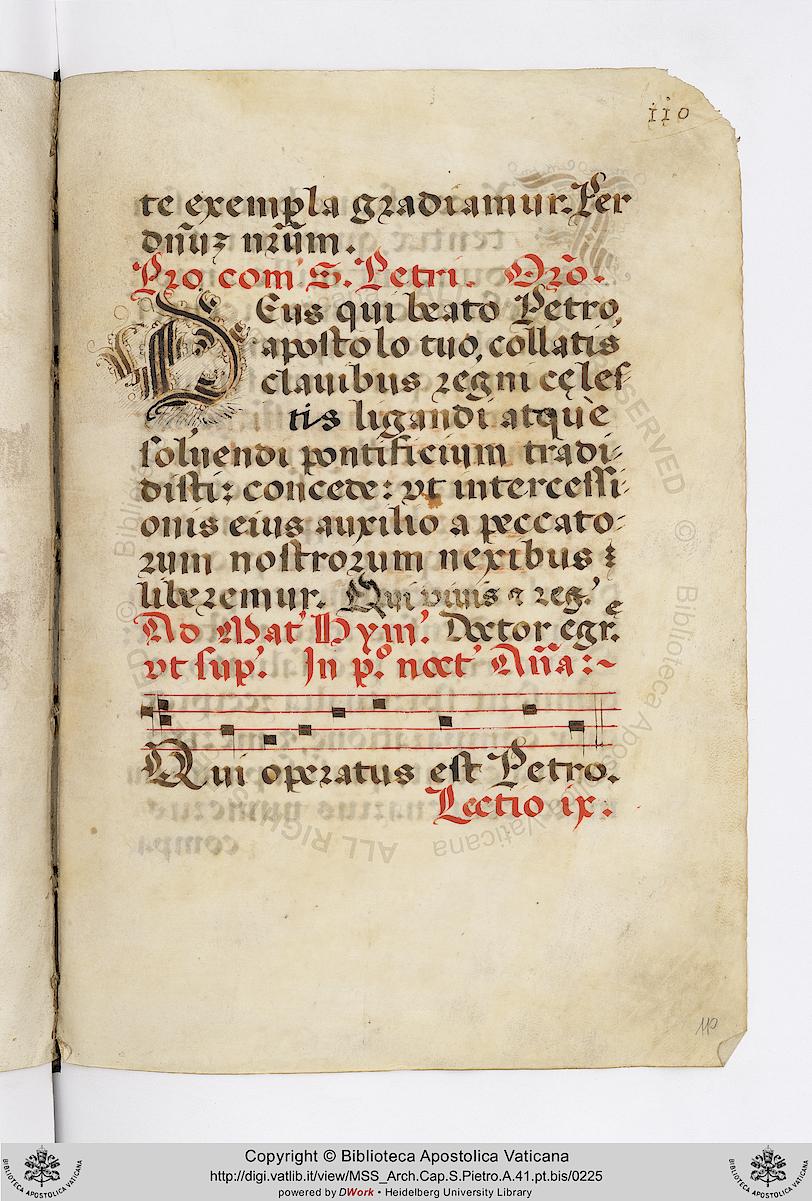 110
te exempla gradiamur. Per
dñuȝ nr̃um.
Pro com̃ S. Petri. Orõ.
DEus qui beato Petro,
apostolo tuo, collatis
clauibus regni cęles
tis ligandi atque
soluendi pontificium tradi-
disti: concede: vt intercessi-
onis eius auxilio a peccato-
rum nostrorum nexibus
liberemur. Qui viuis & reg.
Ad Mat' Hym'. Doctor egr.e
vt sup'. In p.º noct' Aña:~
Qui operatus est Petro.
Lectio ix.
110
Copyright © Biblioteca Apostolica Vaticana
http://digi.vatlib.it/view/MSS_Arch.Cap.S.Pietro.A.41.pt.bis/0225
powered by DWork • Heidelberg University Library